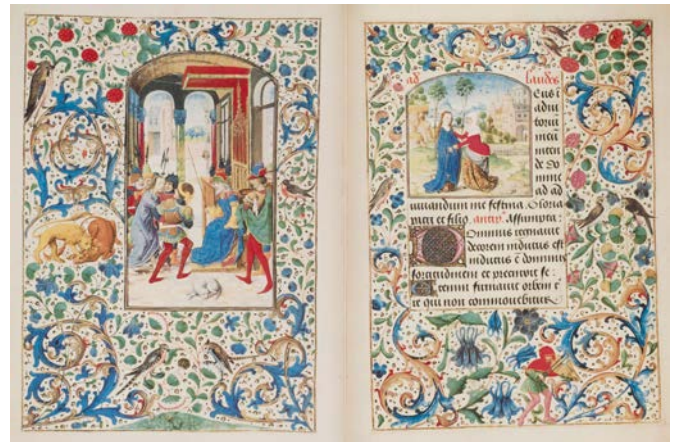 ad laudes
Eus ī
adiu
toriū
meū
inten
de Do
mine
ad ad
iuuandum me festina. Gloria
patri et filio. antiᵖ. Assumpta:
Ominus regnauit
decorem indutus est
indutus ē dominus
fortitudinem et precinxit se:
Etenim firmauit orbem t̄
re qui non commouebitur